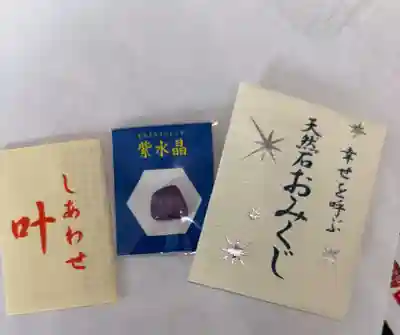 しあわせ
叶
紫水晶
幸せを呼ぶ
天然石おみくじ